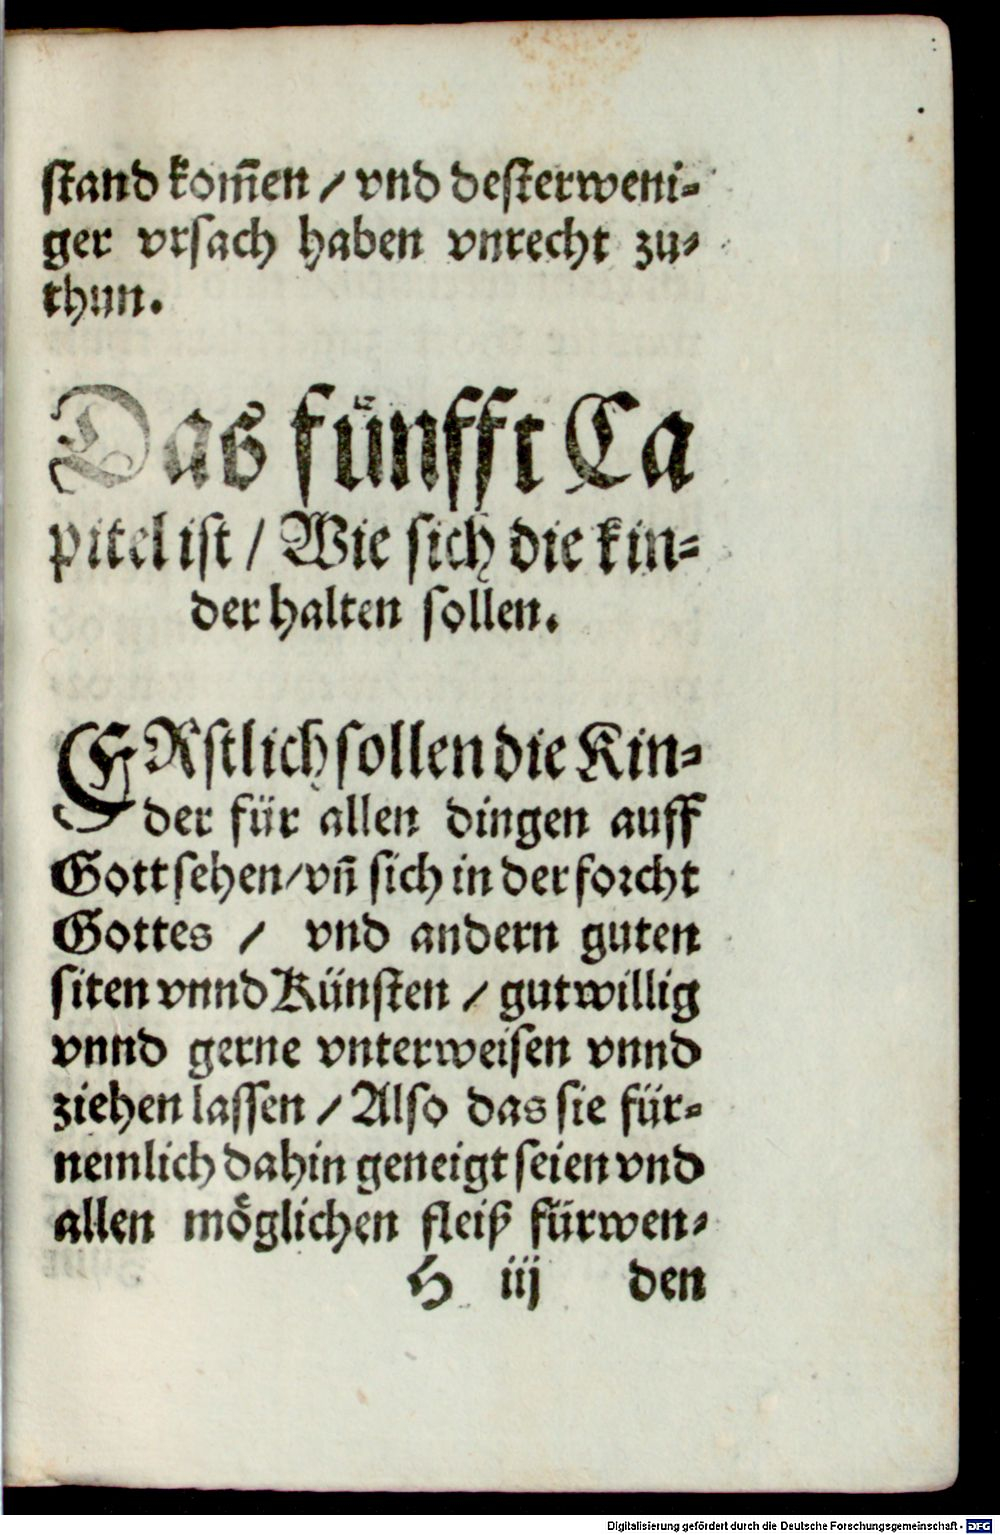 stand kom̃en / vnd desterweni-
ger vrsach haben vnrecht zu-
thun.
Das fünfft Ca
pitel ist / Wie sich die kin-
der halten sollen.
ERstlich sollen die Kin-
der für allen dingen auff
Gott sehen / vñ sich in der forcht
Gottes / vnd andern guten
siten vnnd Künsten / gutwillig
vnnd gerne vnterweisen vnnd
ziehen lassen / Also das sie für-
nemlich dahin geneigt seien vnd
allen möglichen fleiß fürwen-
H iij den
Digitalisierung gefördert durch die Deutsche Forschungsgemeinschaft - DFG